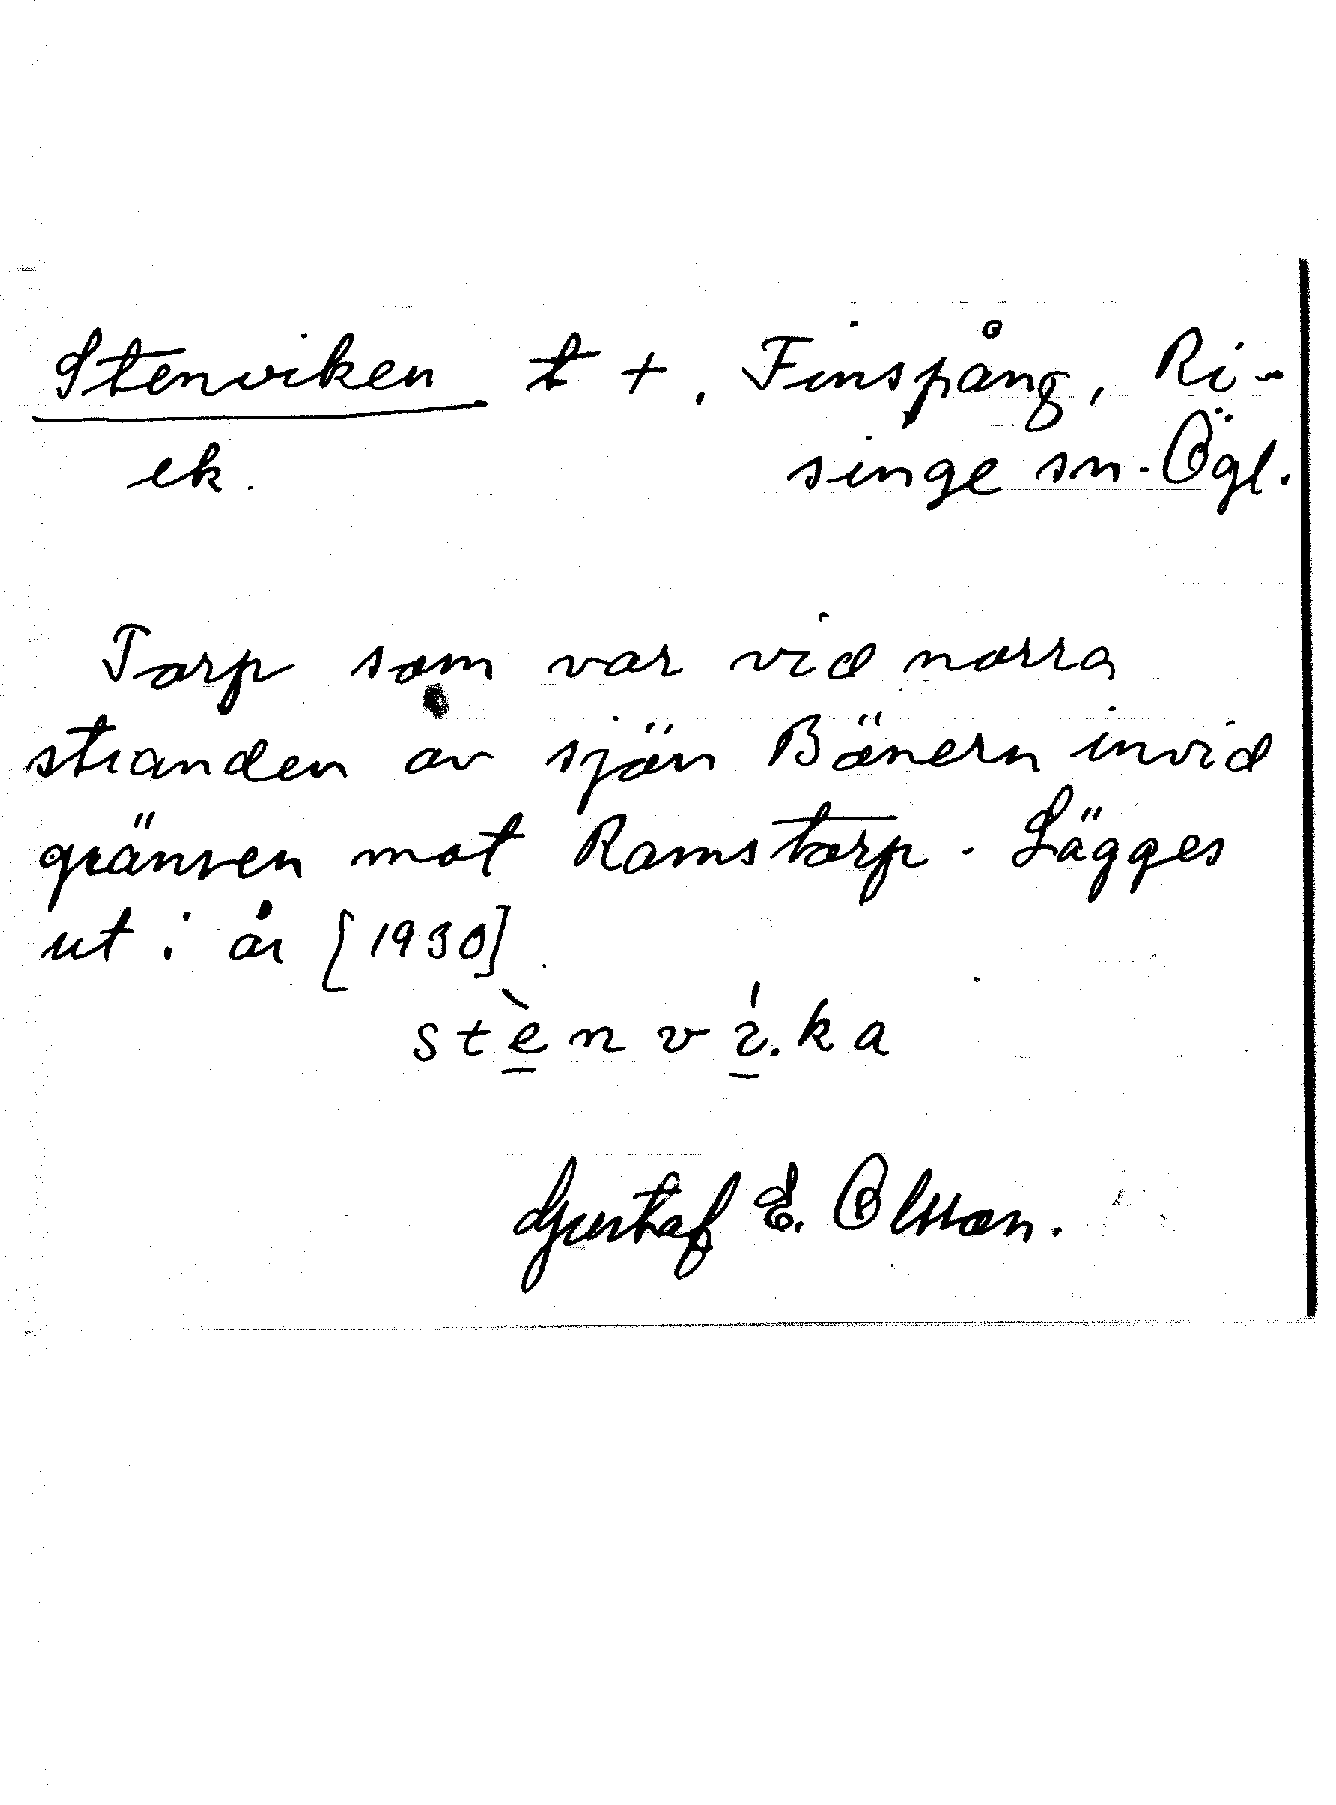 Stenviken t +. Finspång, Ri-
ek. singe sn. Ögl.
Torp som var vid norra
stranden av sjön Bönern invid
gränsen mot Ramstorp. Lägges
ut i år [1930]
stènvı̍.ka
Gustaf E. Olsson.